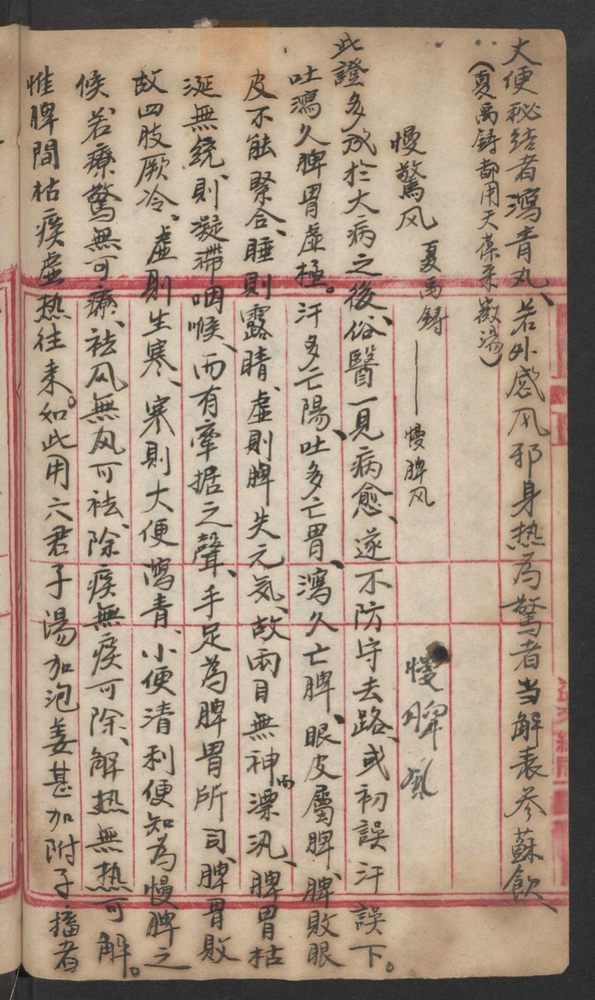 大便秘结者瀉青丸、若外感风邪身热為驚者当解表参蘇飲、
（夏禹铸都用天保采薇湯）
慢驚风 夏禹鑄——慢脾风
慢脾氣
此證多成於大病之後、俗醫一見病愈、遂不防守去路、或初誤汗誤下。
吐瀉久脾胃虛極。汗多亡陽、吐多亡胃、瀉久亡脾、眼皮屬脾、脾敗眼
皮不能緊合、睡則露睛、虛則脾失元気、故兩目無神而漂汎、脾胃枯
涎無統、則凝滯咽喉、而有牽据之聲、手足為脾胃所司、脾胃敗
故四肢厥冷、虛則生寒、寒則大便瀉青、小便清利便知為慢脾之
候、若療驚無可療、祛风無风可祛、除痰無痰可除、解热無热可解。
惟脾間枯痰虛热往来。如此用六君子湯加泡姜甚加附子、搐者